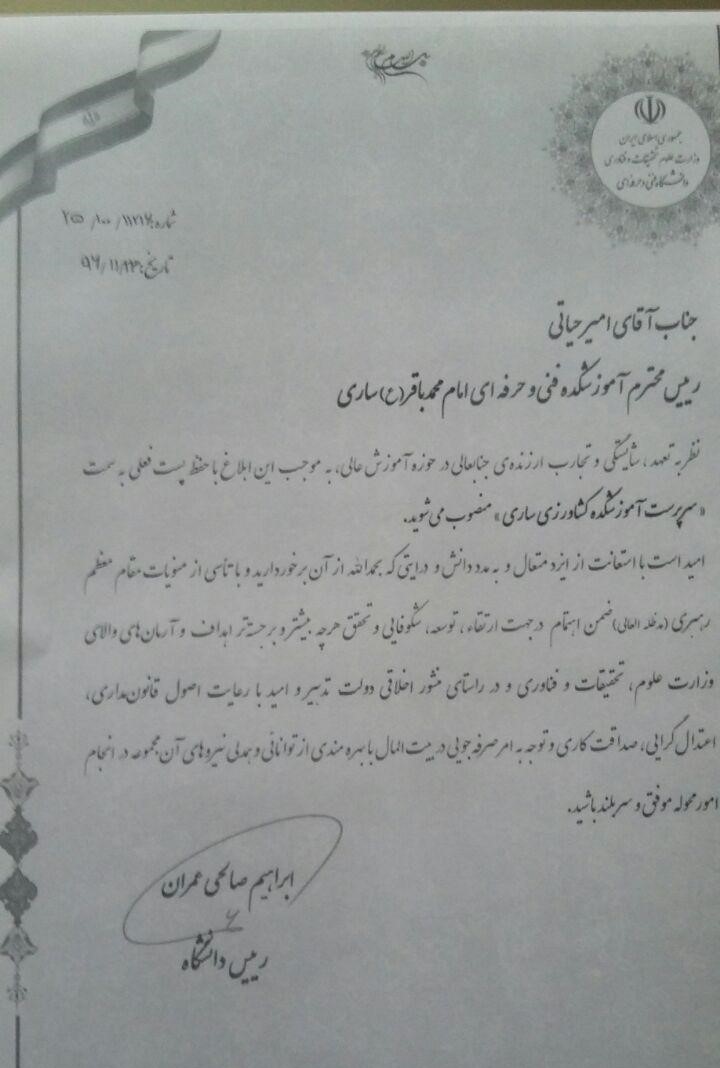 جمهوری اسلامی ایران
وزارت علوم تحقیقات و فناوری
دانشگاه فنی و حرفه‌ای
شماره: /۱۰۰/ ۲۵
تاریخ: ۹۶/۱۱/۲۳
جناب آقای امیر حیاتی
رییس محترم آموزشکده فنی و حرفه ای امام محمد باقر(ع) ساری
نظر به تعهد، شایستگی و تجارب ارزنده‌ی جنابعالی در حوزه آموزش عالی، به موجب این ابلاغ با حفظ پست فعلی به سمت
«سرپرست آموزشکده کشاورزی ساری» منصوب می‌شوید.
امید است با استعانت از ایزد متعال و به مدد دانش و درایتی که بحمدالله از آن برخوردارید و با تأسی از منویات مقام معظم
رهبری (مدظله العالی) ضمن اهتمام در جهت ارتقاء، توسعه، شکوفایی و تحقق هرچه بیشتر و برجسته‌تر اهداف و آرمان‌های والای
وزارت علوم، تحقیقات و فناوری و در راستای منشور اخلاقی دولت تدبیر و امید با رعایت اصول قانون‌مداری،
اعتدال گرایی، صداقت کاری و توجه به امر صرفه جویی در بیت المال با بهره مندی از توانائی و همدلی نیروهای آن مجموعه در انجام
امور محوله موفق و سربلند باشید.
ابراهیم صالحی عمران
رییس دانشگاه